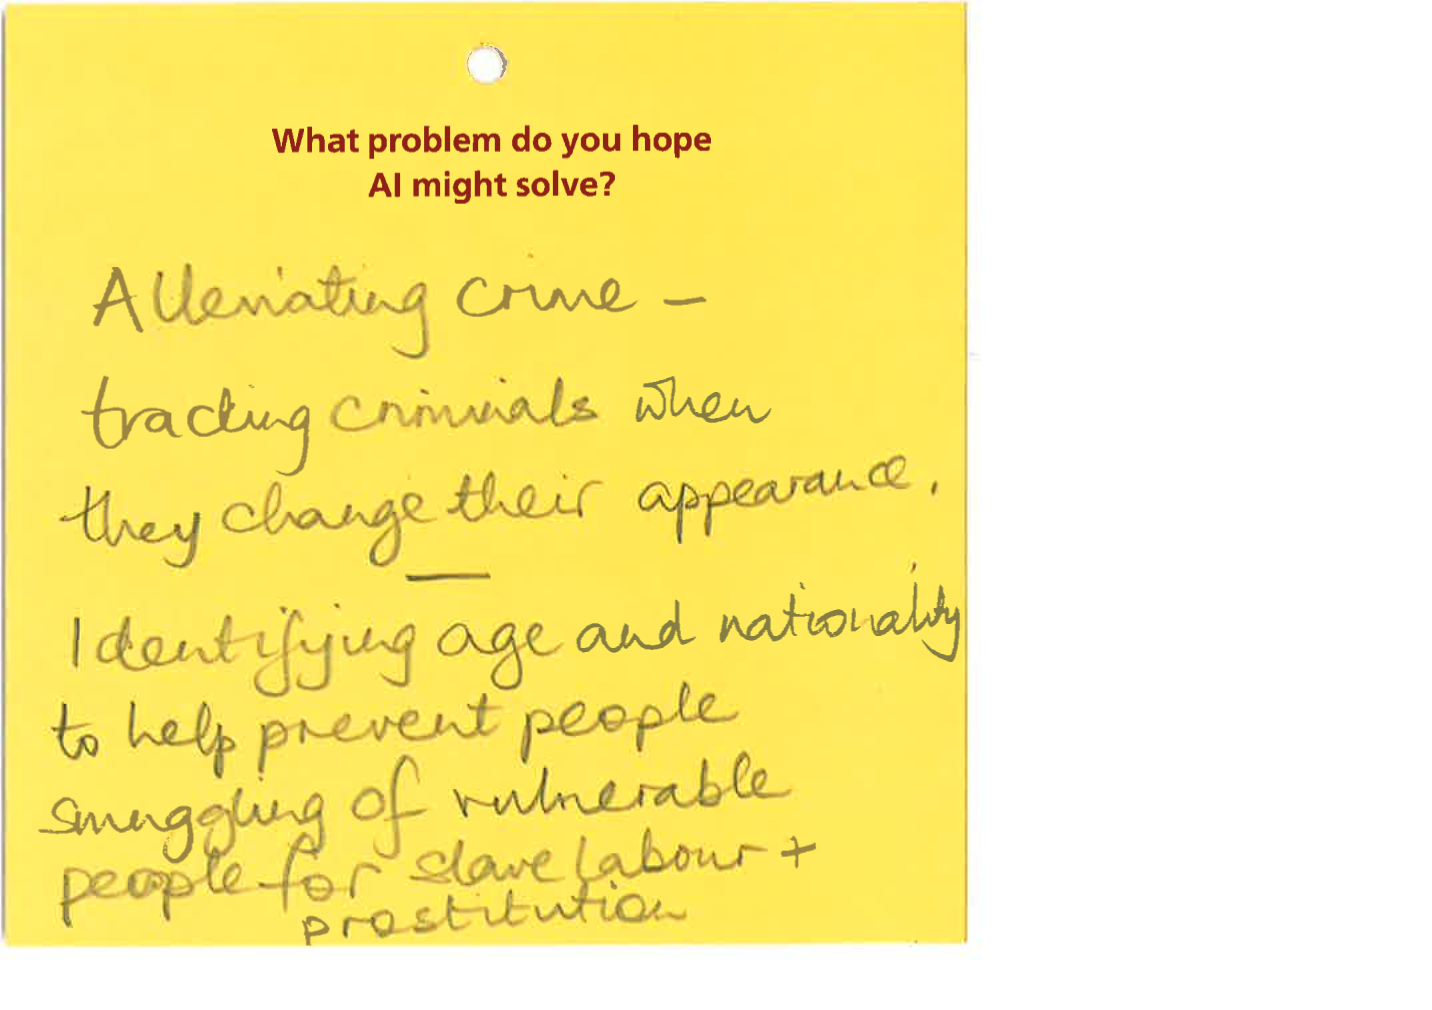 What problem do you hope
AI might solve?
Alleviating crime –
tracking criminals when
they change their appearance.
—
Identifying age and nationality
to help prevent people
smuggling of vulnerable
people for slave labour +
prostitution